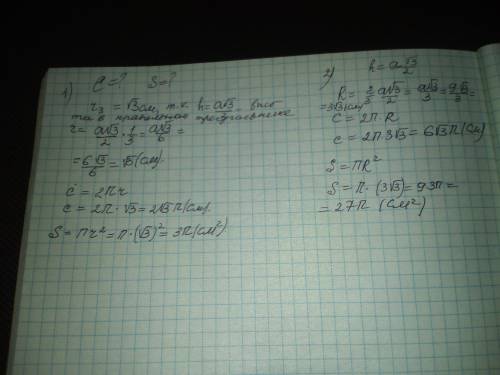 C = ? S = ?
1)
r₃ = √3 см, т.к. h = a√3/2 - высо
та в правильном треугольнике
r = a√3/2 · 1/3 = a√3/6 =
= 6√3/6 = √3 (см).
C = 2πr
c = 2π · √3 = 2√3π (см).
S = πr² = π · (√3)² = 3π (см²)
2) h = a√3/2
R = 2/3 a√3/2 = a√3/3 = 9√3/3 =
= 3√3 (см)
C = 2π · R
c = 2π · 3√3 = 6√3π (см)
S = πR²
S = π · (3√3) = 9·3π =
= 27π (см²)